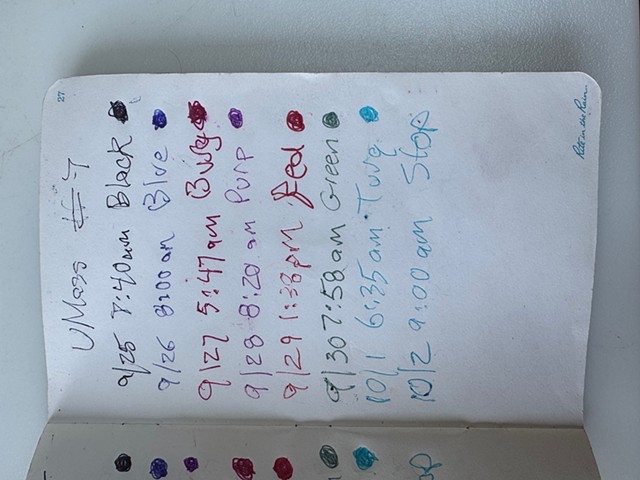 27
UMass #7
9/25 7:40am Black
9/26 8:00am Blue
9/27 5:47am Burg
9/28 8:20am Purp
9/29 1:38pm Red
9/30 7:58am Green
10/1 6:35am Turq
10/2 9:00am Stop
Rite in the Rain